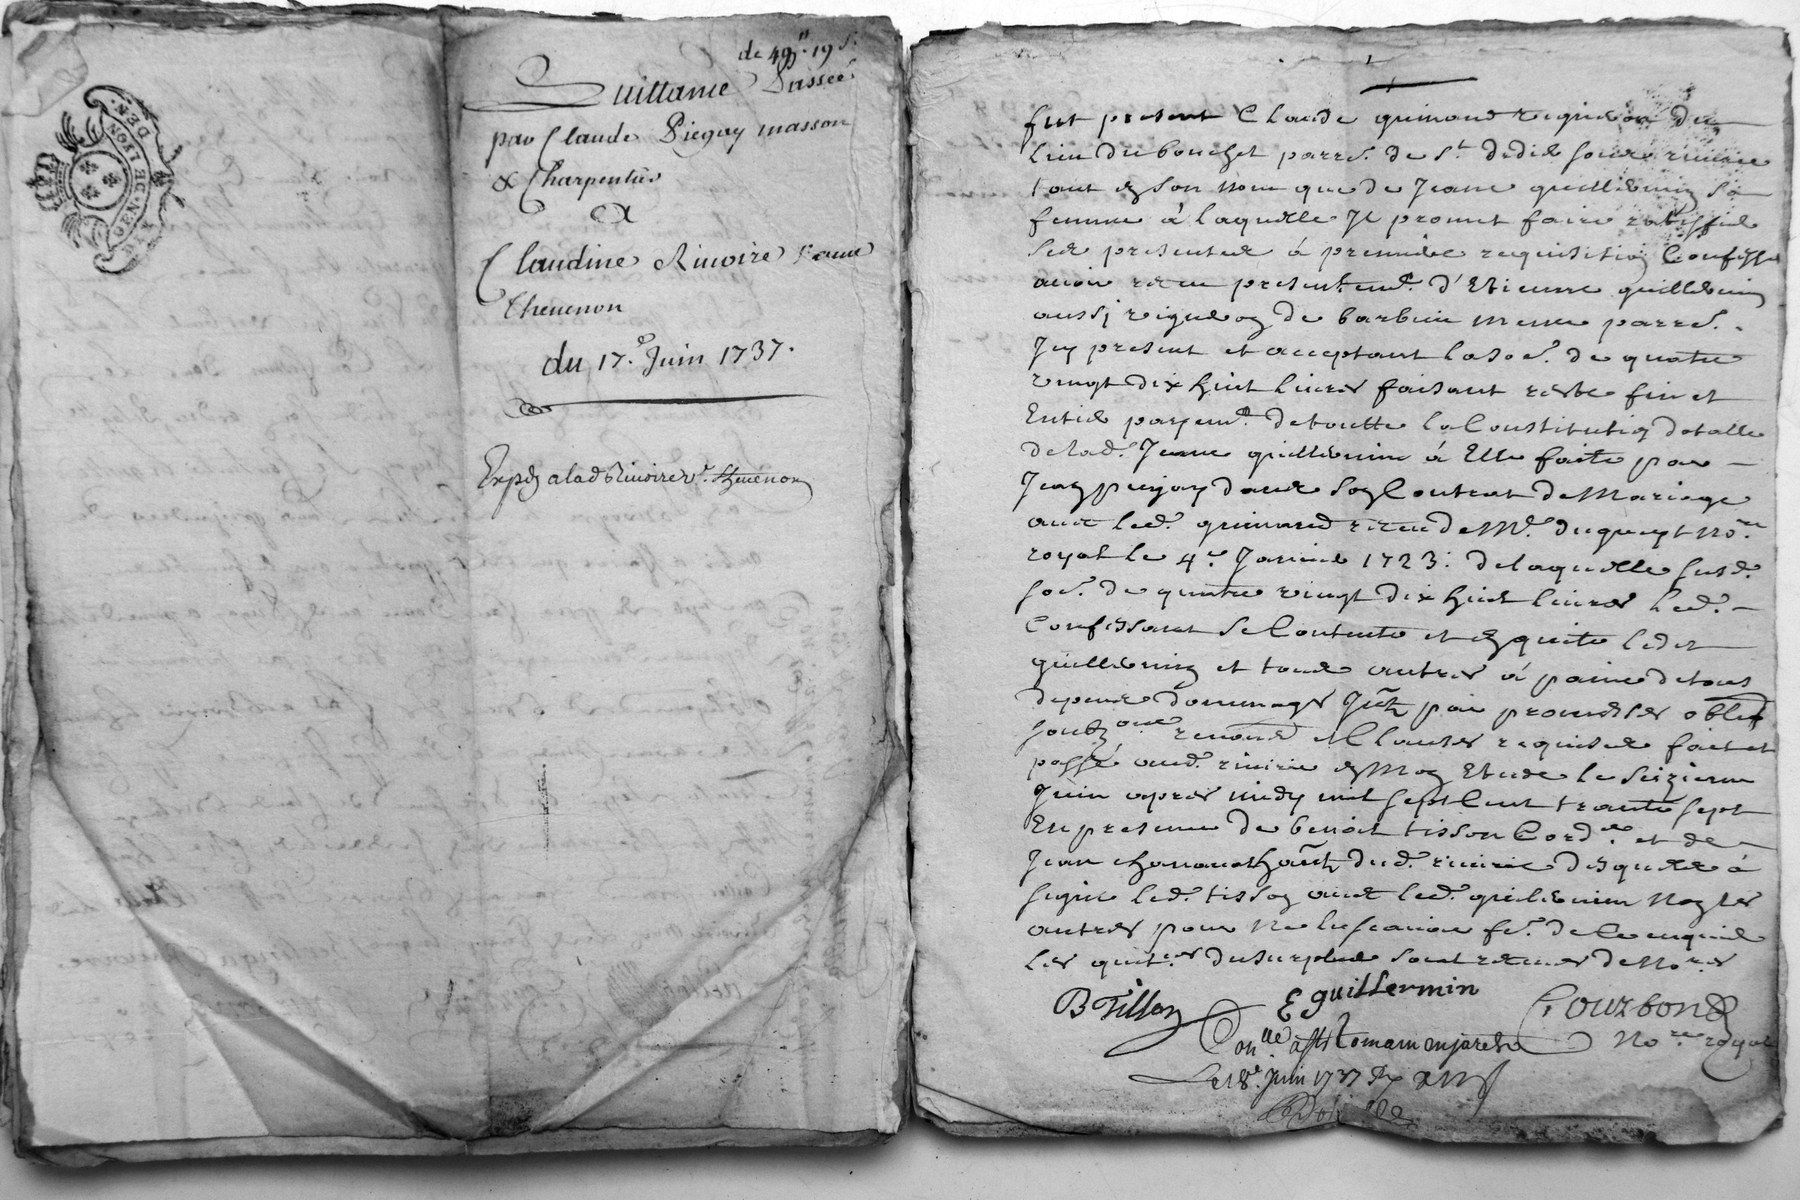 GEN. DE LYON
DEN.
de 49ᵗᵗ 19 s.
Quittance Passée
par Claude Piegay masson
& Charpentier
A
Claudine Rivoire veuve
Thevenon
du 17.e Juin 1737.
Expé a lad Rivoire vᵉ. Thevenon
fut present Claude guinand vigneron du
lieu du bouchet parrᵉ. de Sᵗ. didier sous riverie
tant en son nom que de Jeanne guillermin sa
femme à laquelle Jl promet faire ratiffier
ses presentes à premiere requisition Confesse
avoir receu presentemᵗ. d'Etienne guillermin
aussi vigneron de barbieu mesme parrᵉ.
Jcy present et acceptant la soe. de quatre
vingt dix huit livres faisant reste fin et
Entier payemᵗ. de toutte la Constitution dotalle
de lad. Jeanne guillermin à Elle faite par
Jean dans son Contrat de Mariage
avec led. guinand receu de Me. dugueyt noʳᵉ
royal le 4.e Janvier 1723: de laquelle susd.
soe. de quatre vingt dix huit livres led.
Confessant se Contente et en quitte ledit
guillermin et tous autres à peine de tous
depens dommages Jnts par promesses oblig
soubmons renonons et Clauses requises fait et
passé aud. riverie en Mon Etude le seizieme
Juin apres midy mil sept Cent trante sept
En presence de benoit tisson Corder et de
Jean dud. riverie desquels à
signé led. tisson avec led. guillermin Non les
autres pour ne le scavoir fe. de Ce enquis
les quitces du surplus sont receues de Noʳᵉˢ
B Tisson
E guillermin
Gourbond
Noʳᵉ royal
Conllé à St Romain en jarest
Le 18e. Juin 1737 R